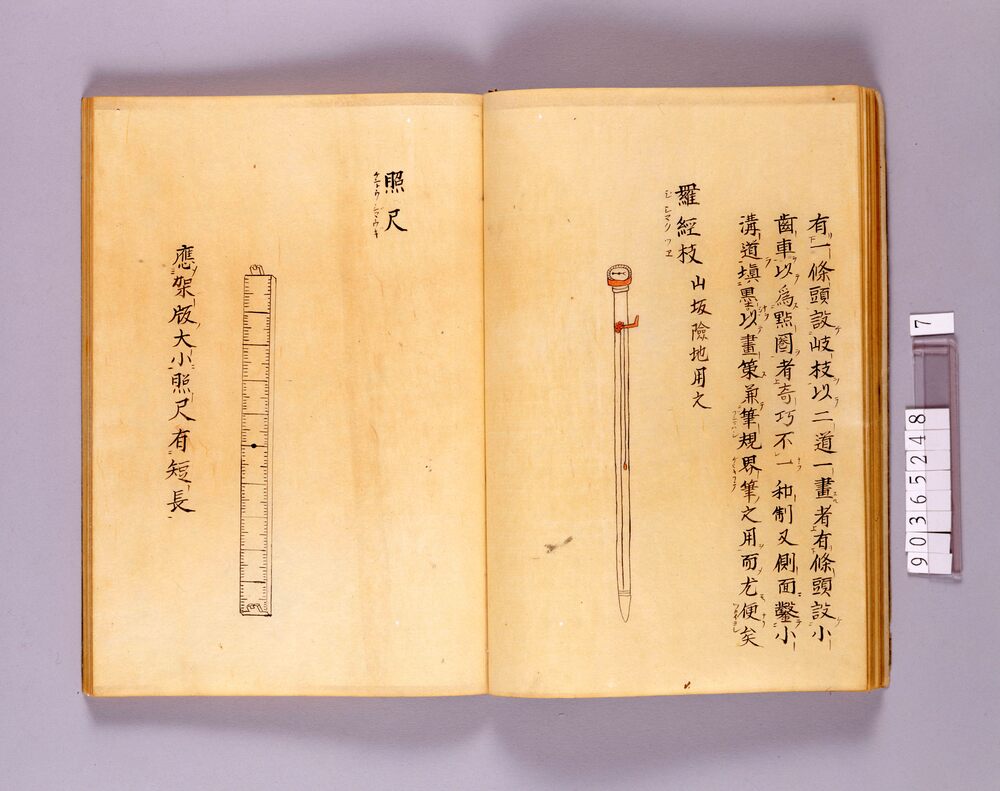 有一條頭設岐枝以二道一畫者有條頭設小
齒車以為點圏者奇巧不一和制又側面鑿小
溝道塡墨以畫策兼筆規界筆之用而尤便矣
羅經枝 山坂險地用之
照尺
應架版大小照尺有短長
7
90365248